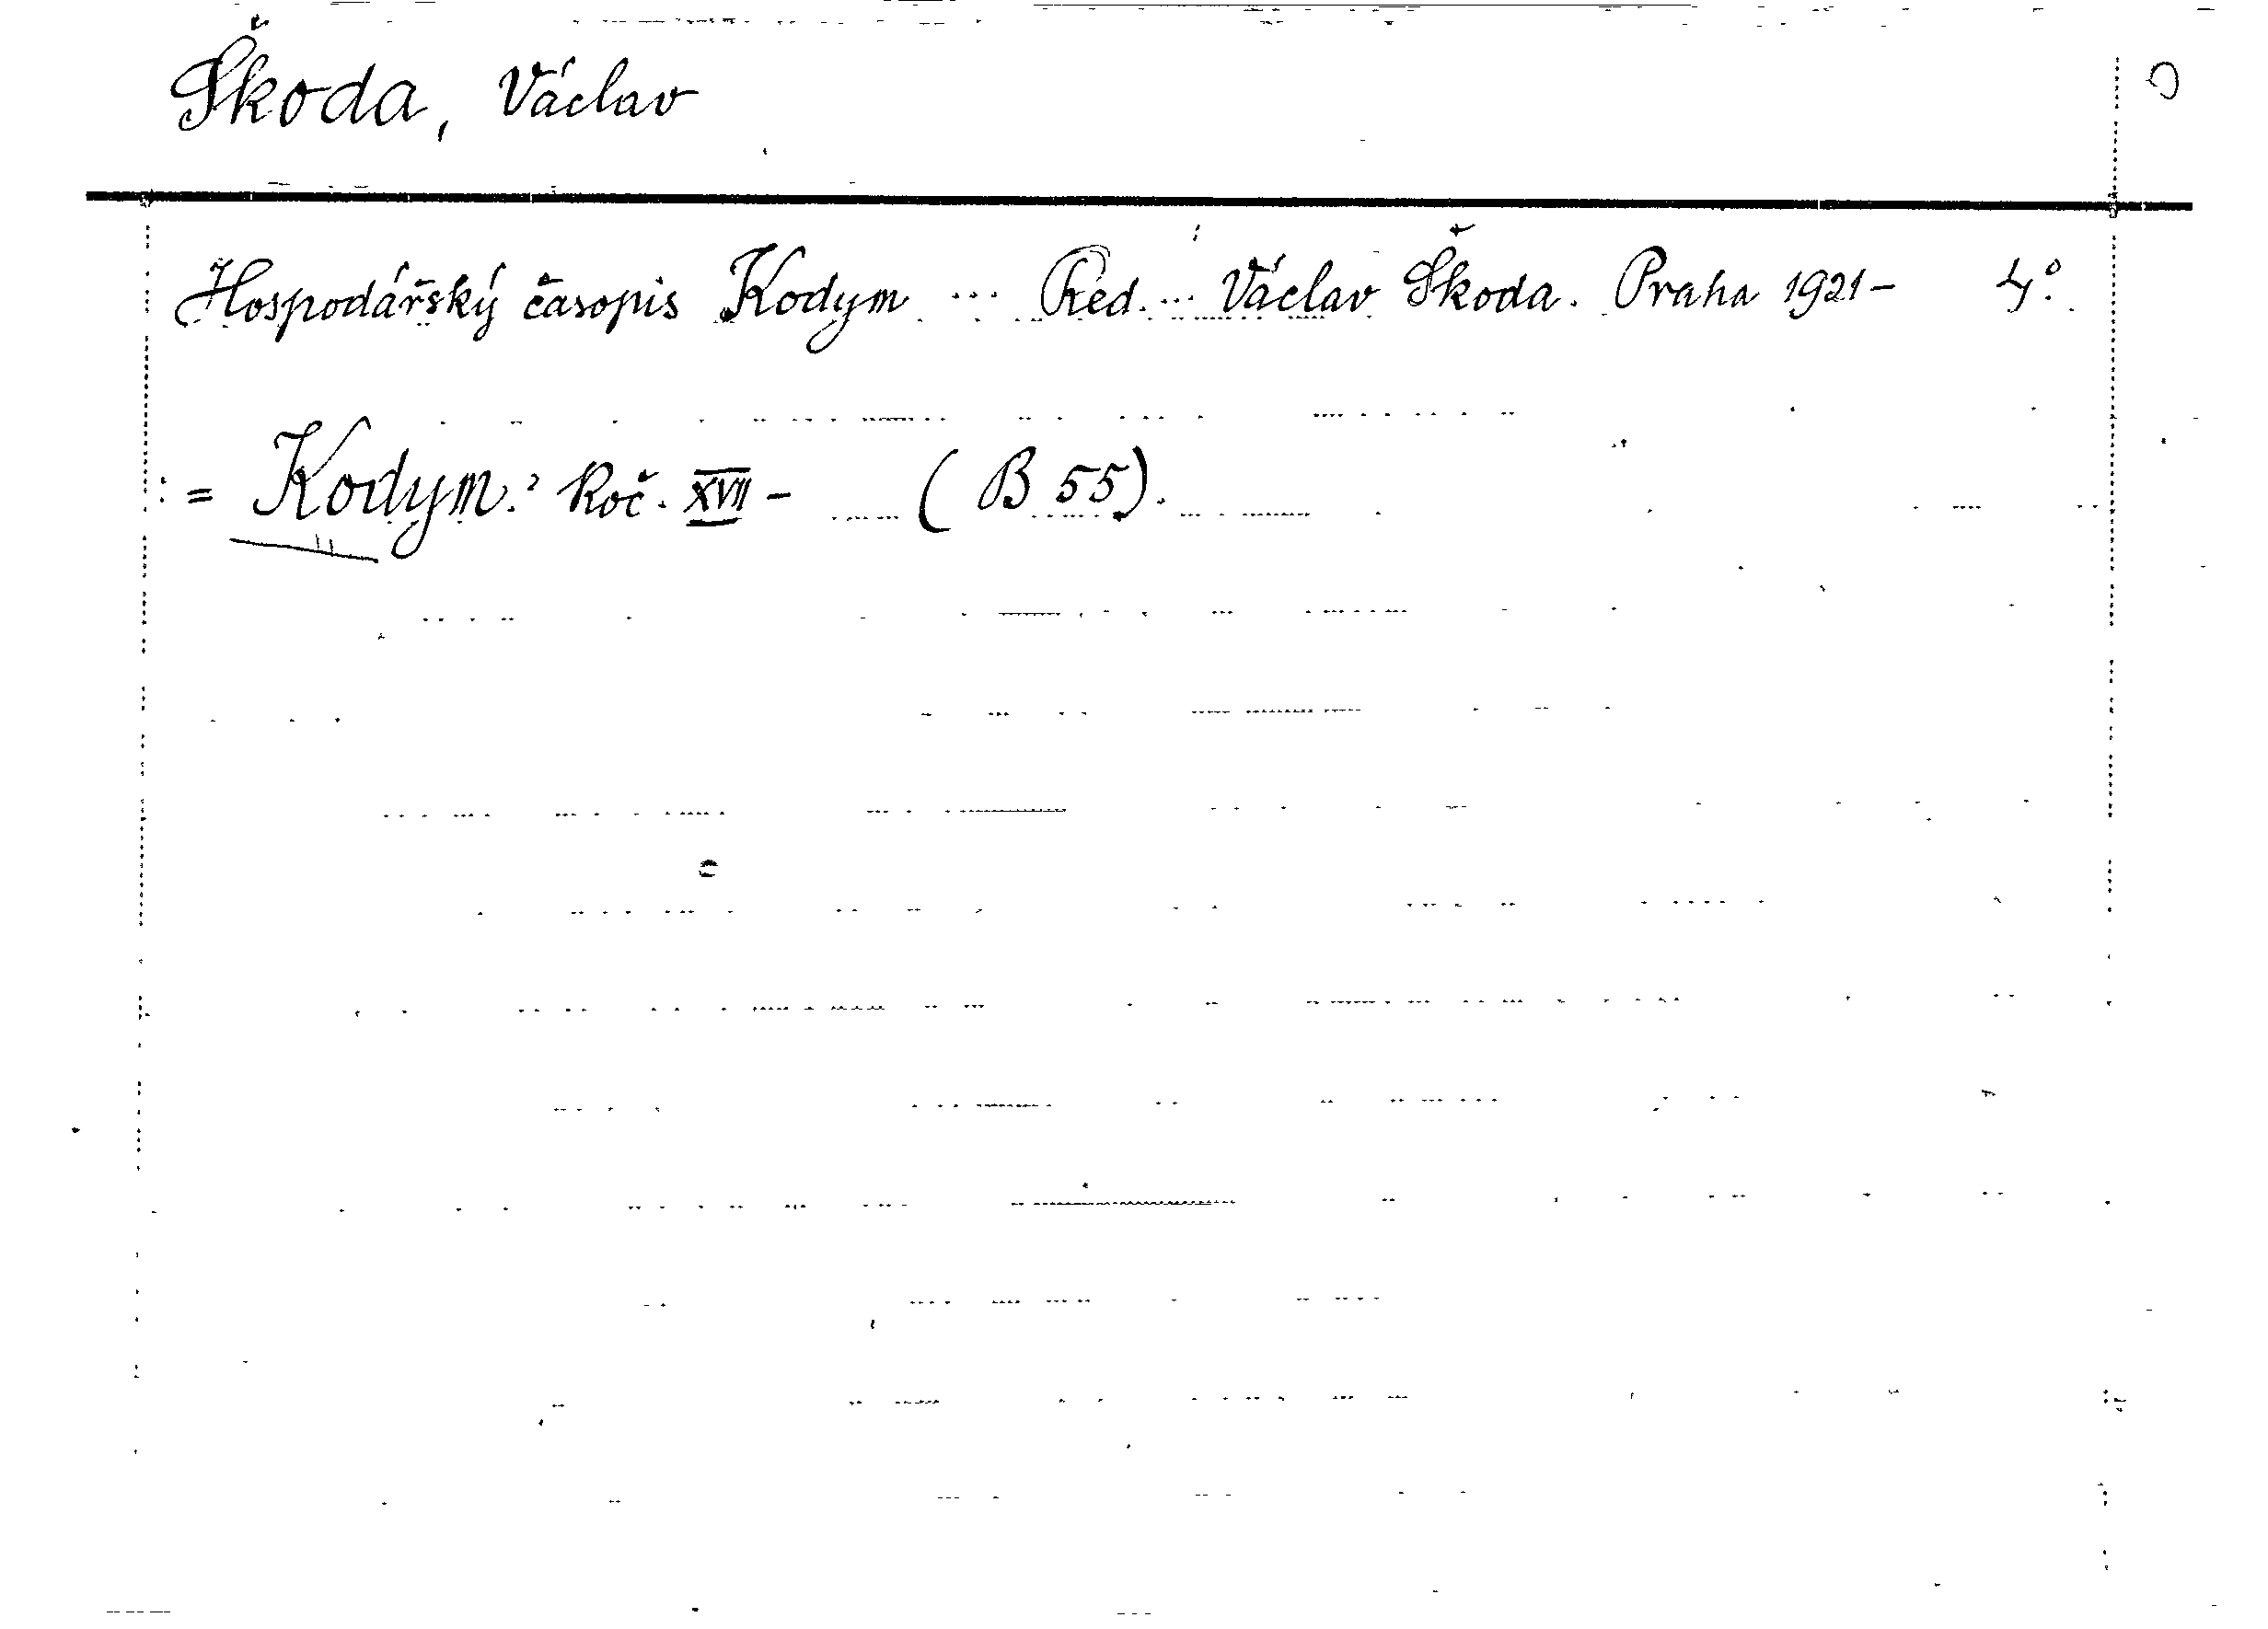 Škoda, Václav
Hospodářský časopis Kodym ... Red. ... Václav Škoda. Praha 1921- 4°.
= Kodym. Roč. XVII - (B 55).